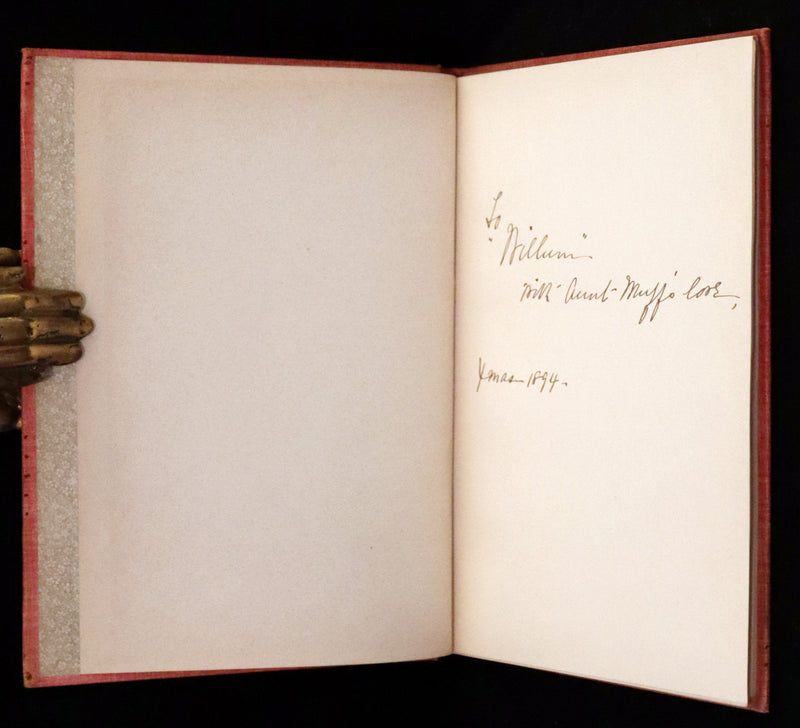 To
"Willum"
with Aunt Muff's love,
Xmas 1894.